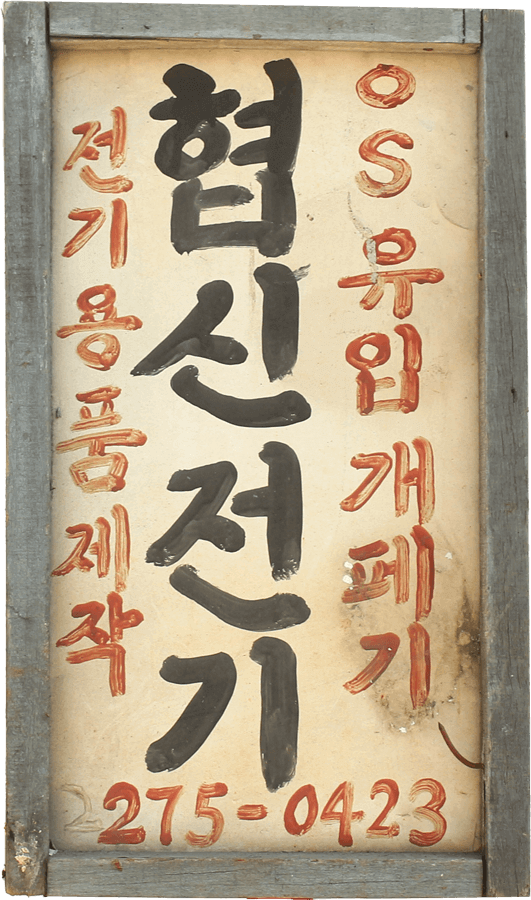 OS유입개폐기
협신전기
전기용품제작
2275-0423